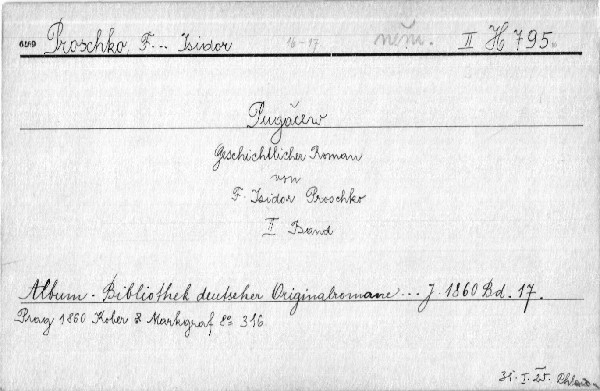 Proschko, F... Isidor 16-17 něm. II H 795.
Pugáčew
Geschichtlicher Roman
von
F. Isidor Proschko
II Band
Album - Bibliothek deutscher Originalromane... J. 1860 Bd. 17.
Prag 1860 Kober & Markgraf 8º 316
31. I. 25.